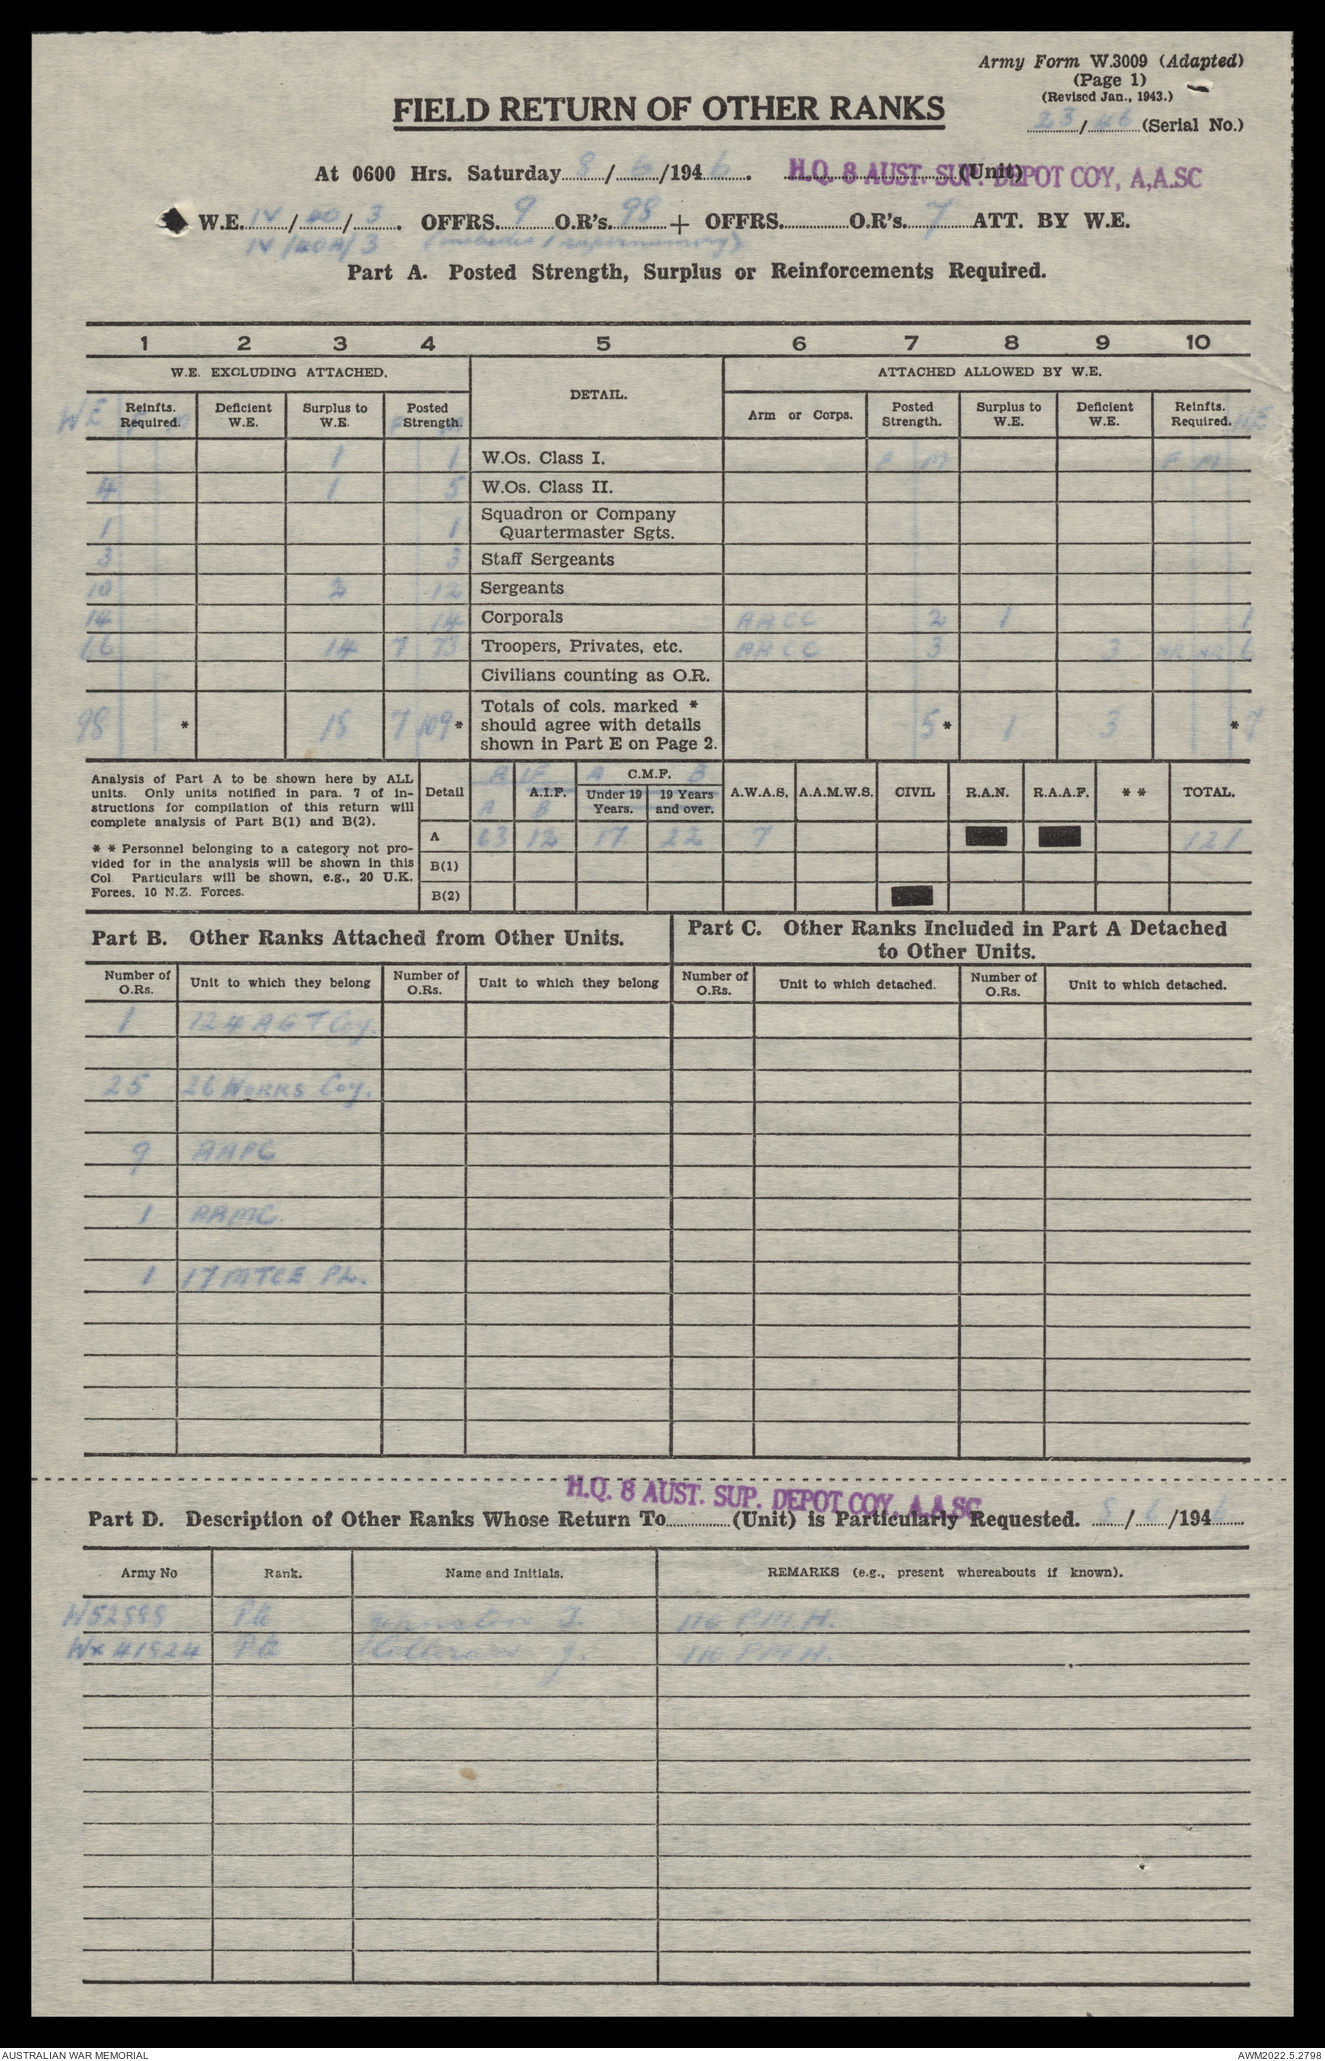 Army Form W.3009 (Adapted)
(Page 1)
(Revised Jan., 1943.)
23/46 (Serial No.)
FIELD RETURN OF OTHER RANKS
At 0600 Hrs. Saturday 8/6/1946. H.Q. 8 AUST. SUP. DEPOT COY, A,A.SC (Unit)
W.E. IV/40/3. OFFRS. 9 O.R's. 98 + OFFRS. O.R's. 7 ATT. BY W.E.
IV/40A/3 (includes 1 supernumary)
Part A. Posted Strength, Surplus or Reinforcements Required.
1 2 3 4 5 6 7 8 9 10
W.E. EXCLUDING ATTACHED. DETAIL. ATTACHED ALLOWED BY W.E.
WE Reinfts. Required. F M Deficient W.E. Surplus to W.E. Posted Strength. F M Arm or Corps. Posted Strength. Surplus to W.E. Deficient W.E. Reinfts. Required. WE
1 1 W.Os. Class I. F M F M
4 1 5 W.Os. Class II.
1 1 Squadron or Company Quartermaster Sgts.
3 3 Staff Sergeants
10 2 12 Sergeants
14 14 Corporals AACC 2 1 1
66 14 7 73 Troopers, Privates, etc. AACC 3 3 NR NR 6
Civilians counting as O.R.
98 * 18 7 109 * Totals of cols. marked * should agree with details shown in Part E on Page 2. 5 * 1 3 * 7
Analysis of Part A to be shown here by ALL
units. Only units notified in para. 7 of in-
structions for compilation of this return will
complete analysis of Part B(1) and B(2).
* * Personnel belonging to a category not pro-
vided for in the analysis will be shown in this
Col. Particulars will be shown, e.g., 20 U.K.
Forces, 10 N.Z. Forces.
Detail A.I.F. A B C.M.F. A B Under 19 Years. 19 Years and over. A.W.A.S. A.A.M.W.S. CIVIL R.A.N. R.A.A.F. * * TOTAL.
A 63 12 17 22 7 121
B(1)
B(2)
Part B. Other Ranks Attached from Other Units.
Part C. Other Ranks Included in Part A Detached
to Other Units.
Number of O.Rs. Unit to which they belong Number of O.Rs. Unit to which they belong Number of O.Rs. Unit to which detached. Number of O.Rs. Unit to which detached.
1 124 AGT Coy.
25 26 WORKS Coy.
9 AAPC
1 AAMC.
1 17 MTCE PL.
H.Q. 8 AUST. SUP. DEPOT COY, A.A.SC
Part D. Description of Other Ranks Whose Return To (Unit) is Particularly Requested. 8/6/1946
Army No Rank. Name and Initials. REMARKS (e.g., present whereabouts if known).
Pte Johnston J. 110 P.M.H.
Pte J. 110 P.M.H.
AUSTRALIAN WAR MEMORIAL AWM2022.5.2798